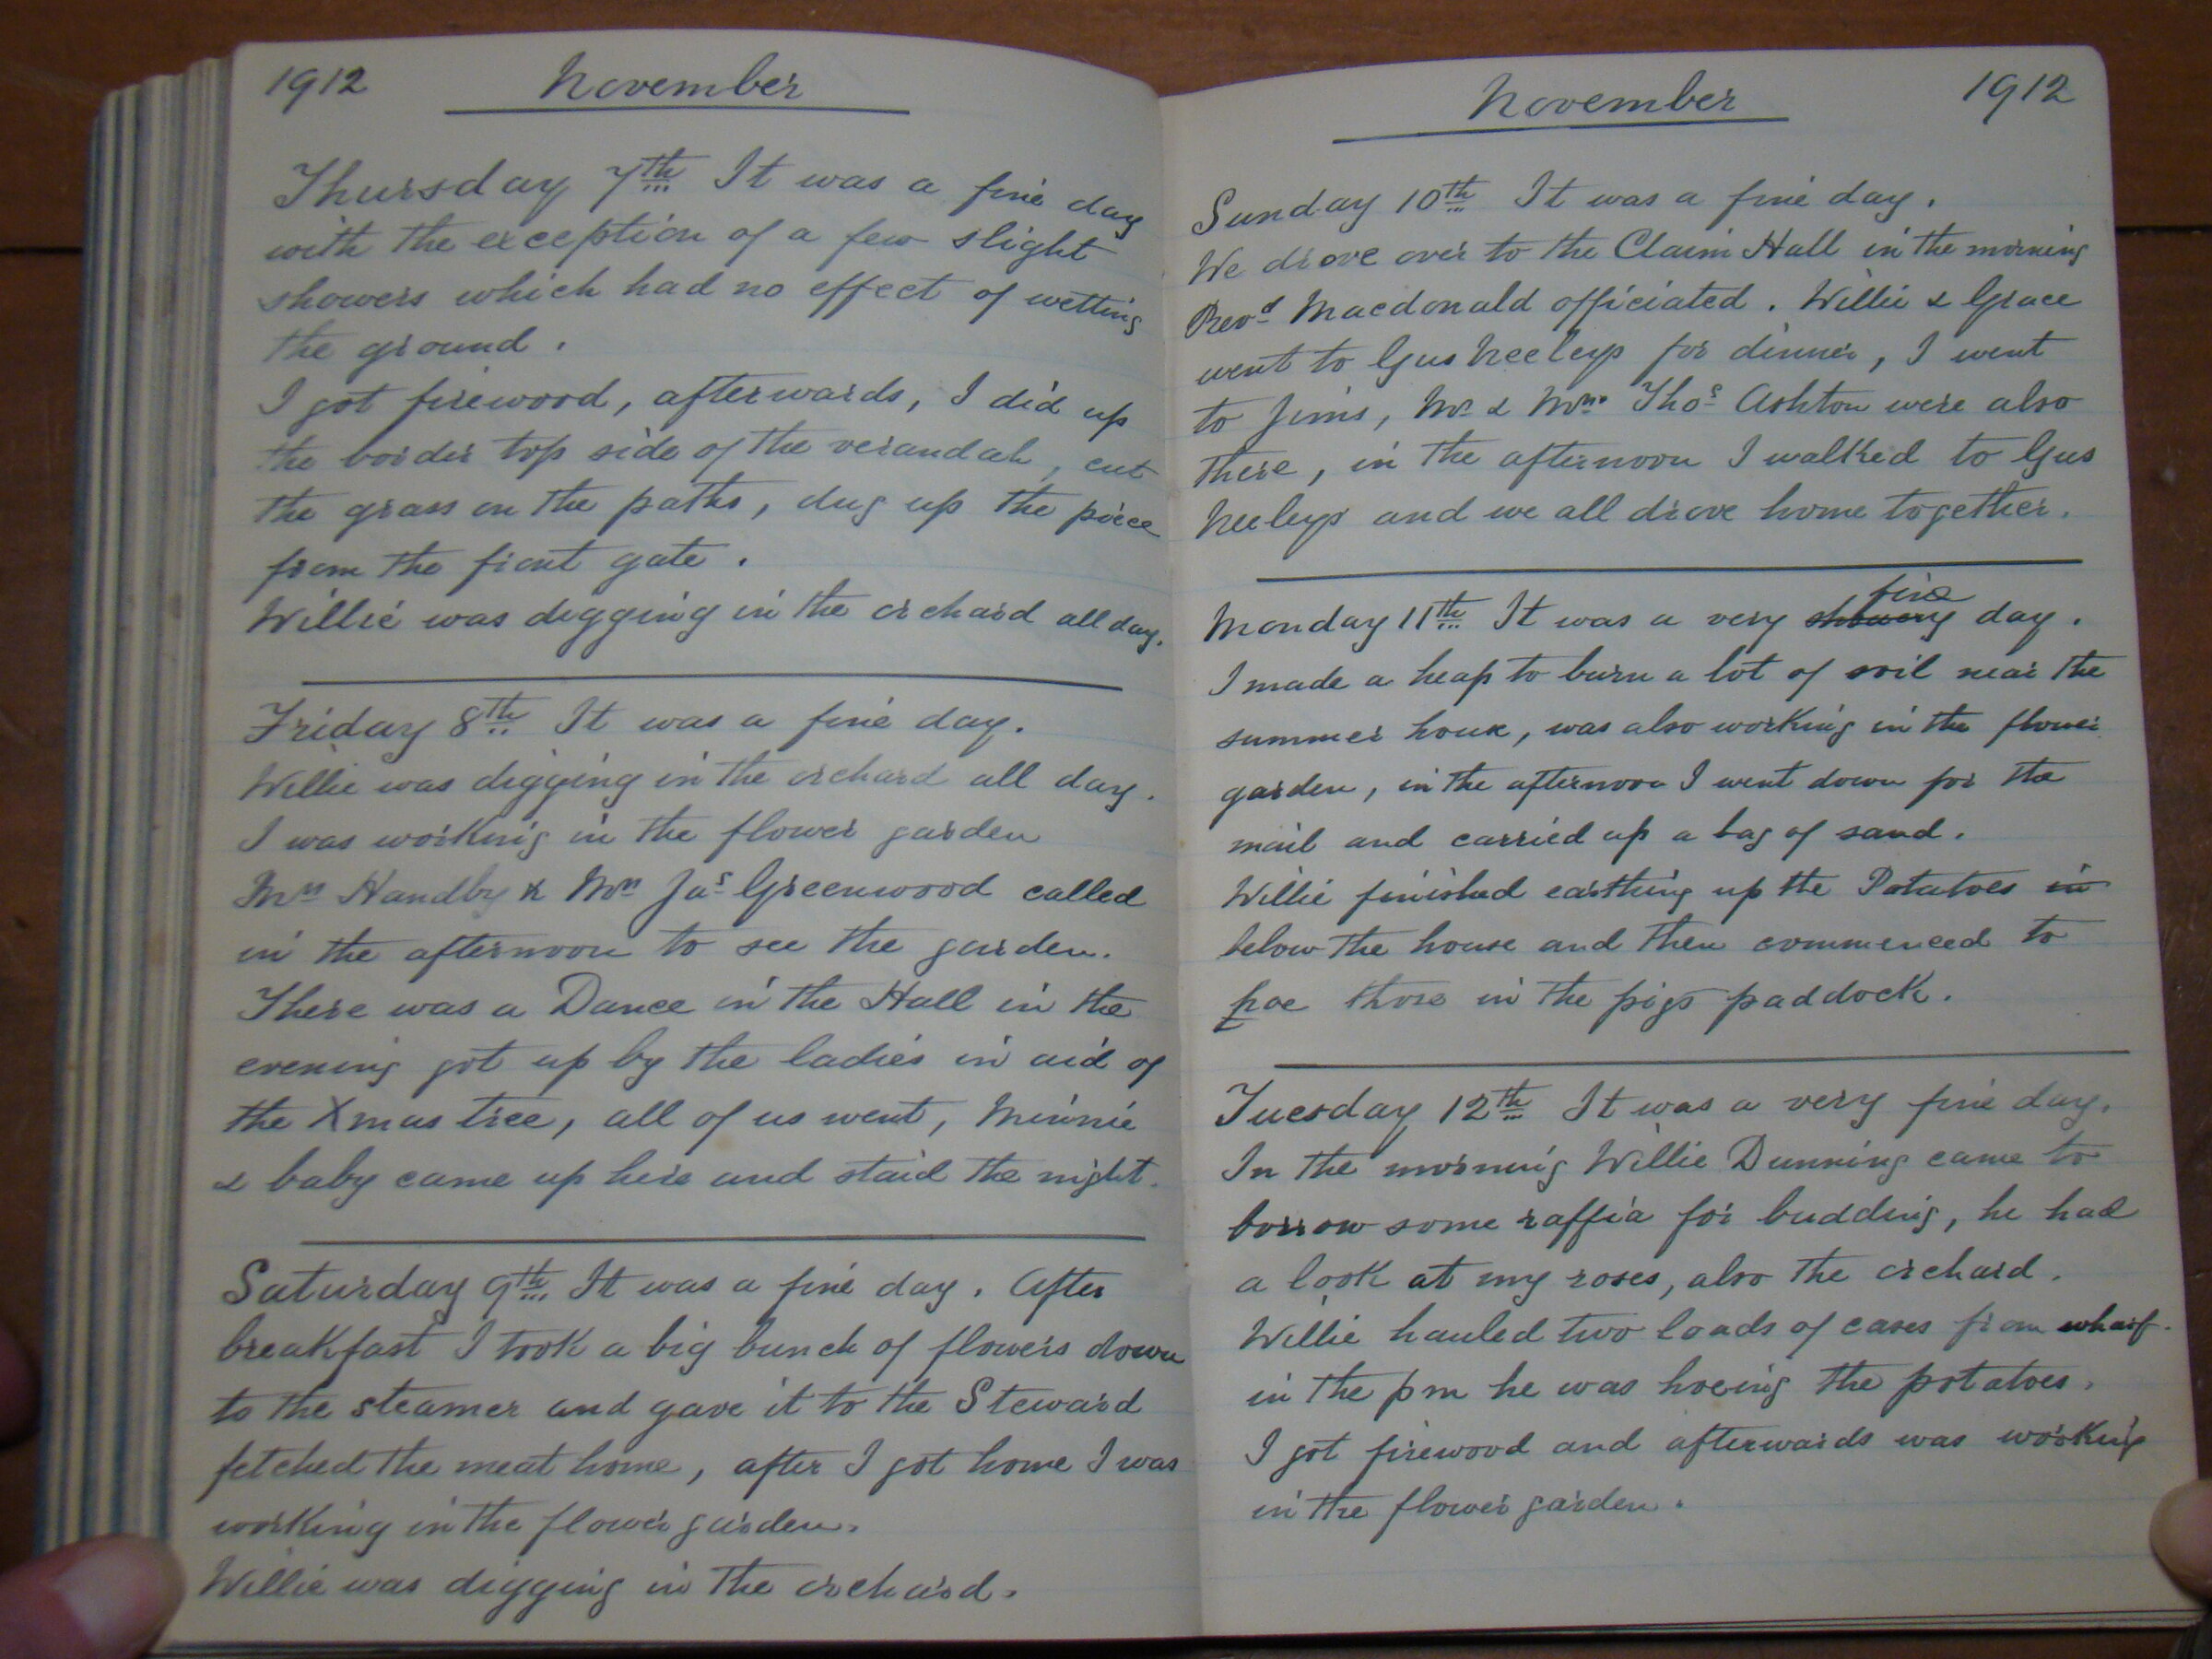 1912 November
Thursday 7th It was a fine day
with the exception of a few slight
showers which had no effect of wetting
the ground.
I got firewood, afterwards, I did up
the border top side of the verandah, cut
the grass on the paths, dug up the piece
from the front gate.
Willie was digging in the orchard all day.
Friday 8th It was a fine day.
Willie was digging in the orchard all day.
I was working in the flower garden
Mrs Handby & Mrs Jas Greenwood called
in the afternoon to see the garden.
There was a Dance in the Hall in the
evening got up by the ladies in aid of
the Xmas tree, all of us went, Minnie
& baby came up here and staid the night.
Saturday 9th It was a fine day. After
breakfast I took a big bunch of flowers down
to the steamer and gave it to the Steward
fetched the meat home, after I got home I was
working in the flower garden.
Willie was digging in the orchard.
November 1912
Sunday 10th It was a fine day.
We drove over to the Claim Hall in the morning
Revd Macdonald officiated. Willie & Grace
went to Gus Neeleys for dinner, I went
to Jims, Mr & Mrs. Thos Ashton were also
there, in the afternoon I walked to Gus
Neeleys and we all drove home together.
Monday 11th It was a very showery fine day.
I made a heap to burn a lot of soil near the
summer house, was also working in the flower
garden, in the afternoon I went down for the
mail and carried up a bag of sand.
Willie finished earthing up the Potatoes in
below the house and then commenced to
hoe those in the pigs paddock.
Tuesday 12th It was a very fine day.
In the morning Willie Dunning came to
borrow some raffia for budding, he had
a look at my roses, also the orchard.
Willie hauled two loads of cases from wharf.
in the pm he was hoeing the potatoes.
I got firewood and afterwards was working
in the flower garden.